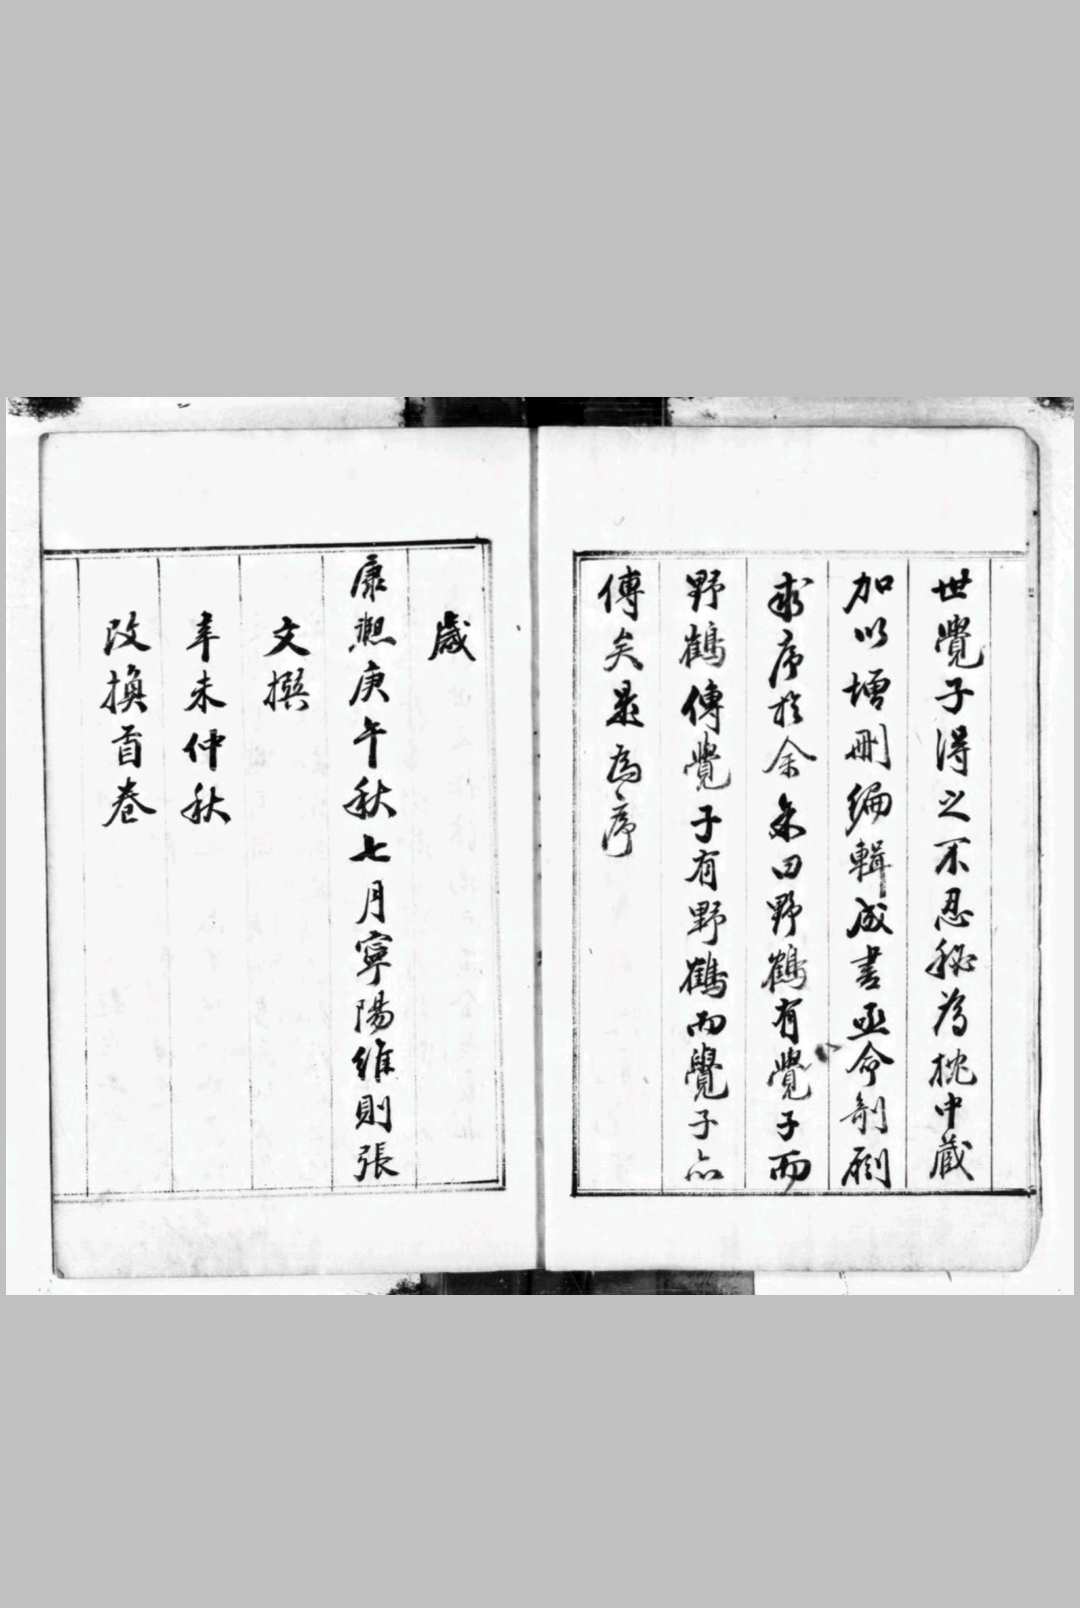 世覺子得之不忍秘為枕中藏
加以增刪編輯成書亟命剞劂
求序於余余曰野鶴有覺子而
野鶴傳覺子有野鶴而覺子亦
傳矣是為序
歲
康熙庚午秋七月寧陽維則張
文撰
辛未仲秋
改換首卷